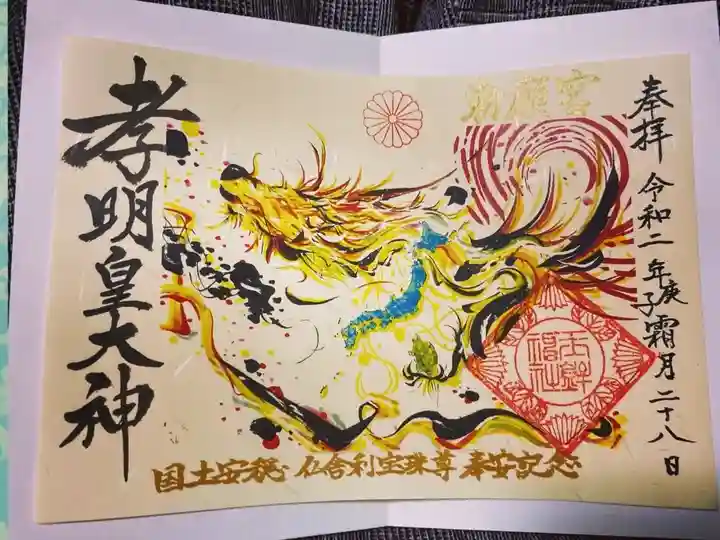 奉拝 令和二年庚子霜月二十八日
孝明皇大神
国土安穏 仏舎利宝珠尊 奉安記念